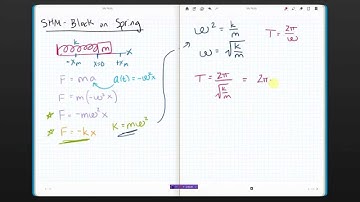 SHM - Block on Spring
m
x
-xm x=0 +xm
F = ma a(t) = -ω²x
F = m(-ω²x)
F = -mω²x
F = -kx K = mω²
ω² = k/m T = 2π/ω
ω = √(k/m)
T = 2π/√(k/m) = 2π